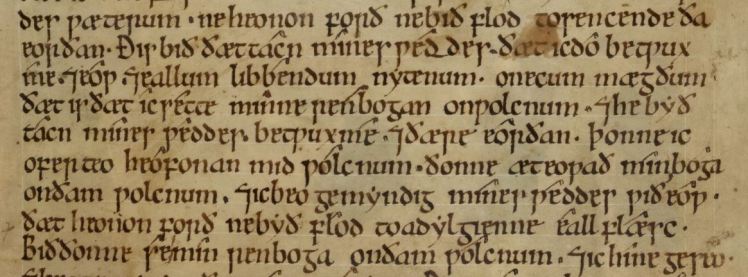 des wæterum · ne heonon forð ne bið flod tosencende ða
eorðan · Ðis bið ðæt tácn mínes wéddes · ðæt ic dó betwux
me · ⁊ eów · ⁊ eallum libbendum nytenum · on ecum mægðum
ðæt is ðæt ic sette mínne renbogan on wolcnum · ⁊ he byð
tácn mínes wéddes · betwux me · ⁊ ðære eórðan · þonne ic
oferteo heófonan mid wólcnum · ðonne æteowað min boga
on ðam wolcnum · ⁊ ic beo gemyndig mínes wéddes wið eów ·
ðæt heonon forð ne byð flód to adylgienne eall flæsc ·
Bið ðonne se min renboga on ðam wólcnum · ⁊ ic hine geseo ·